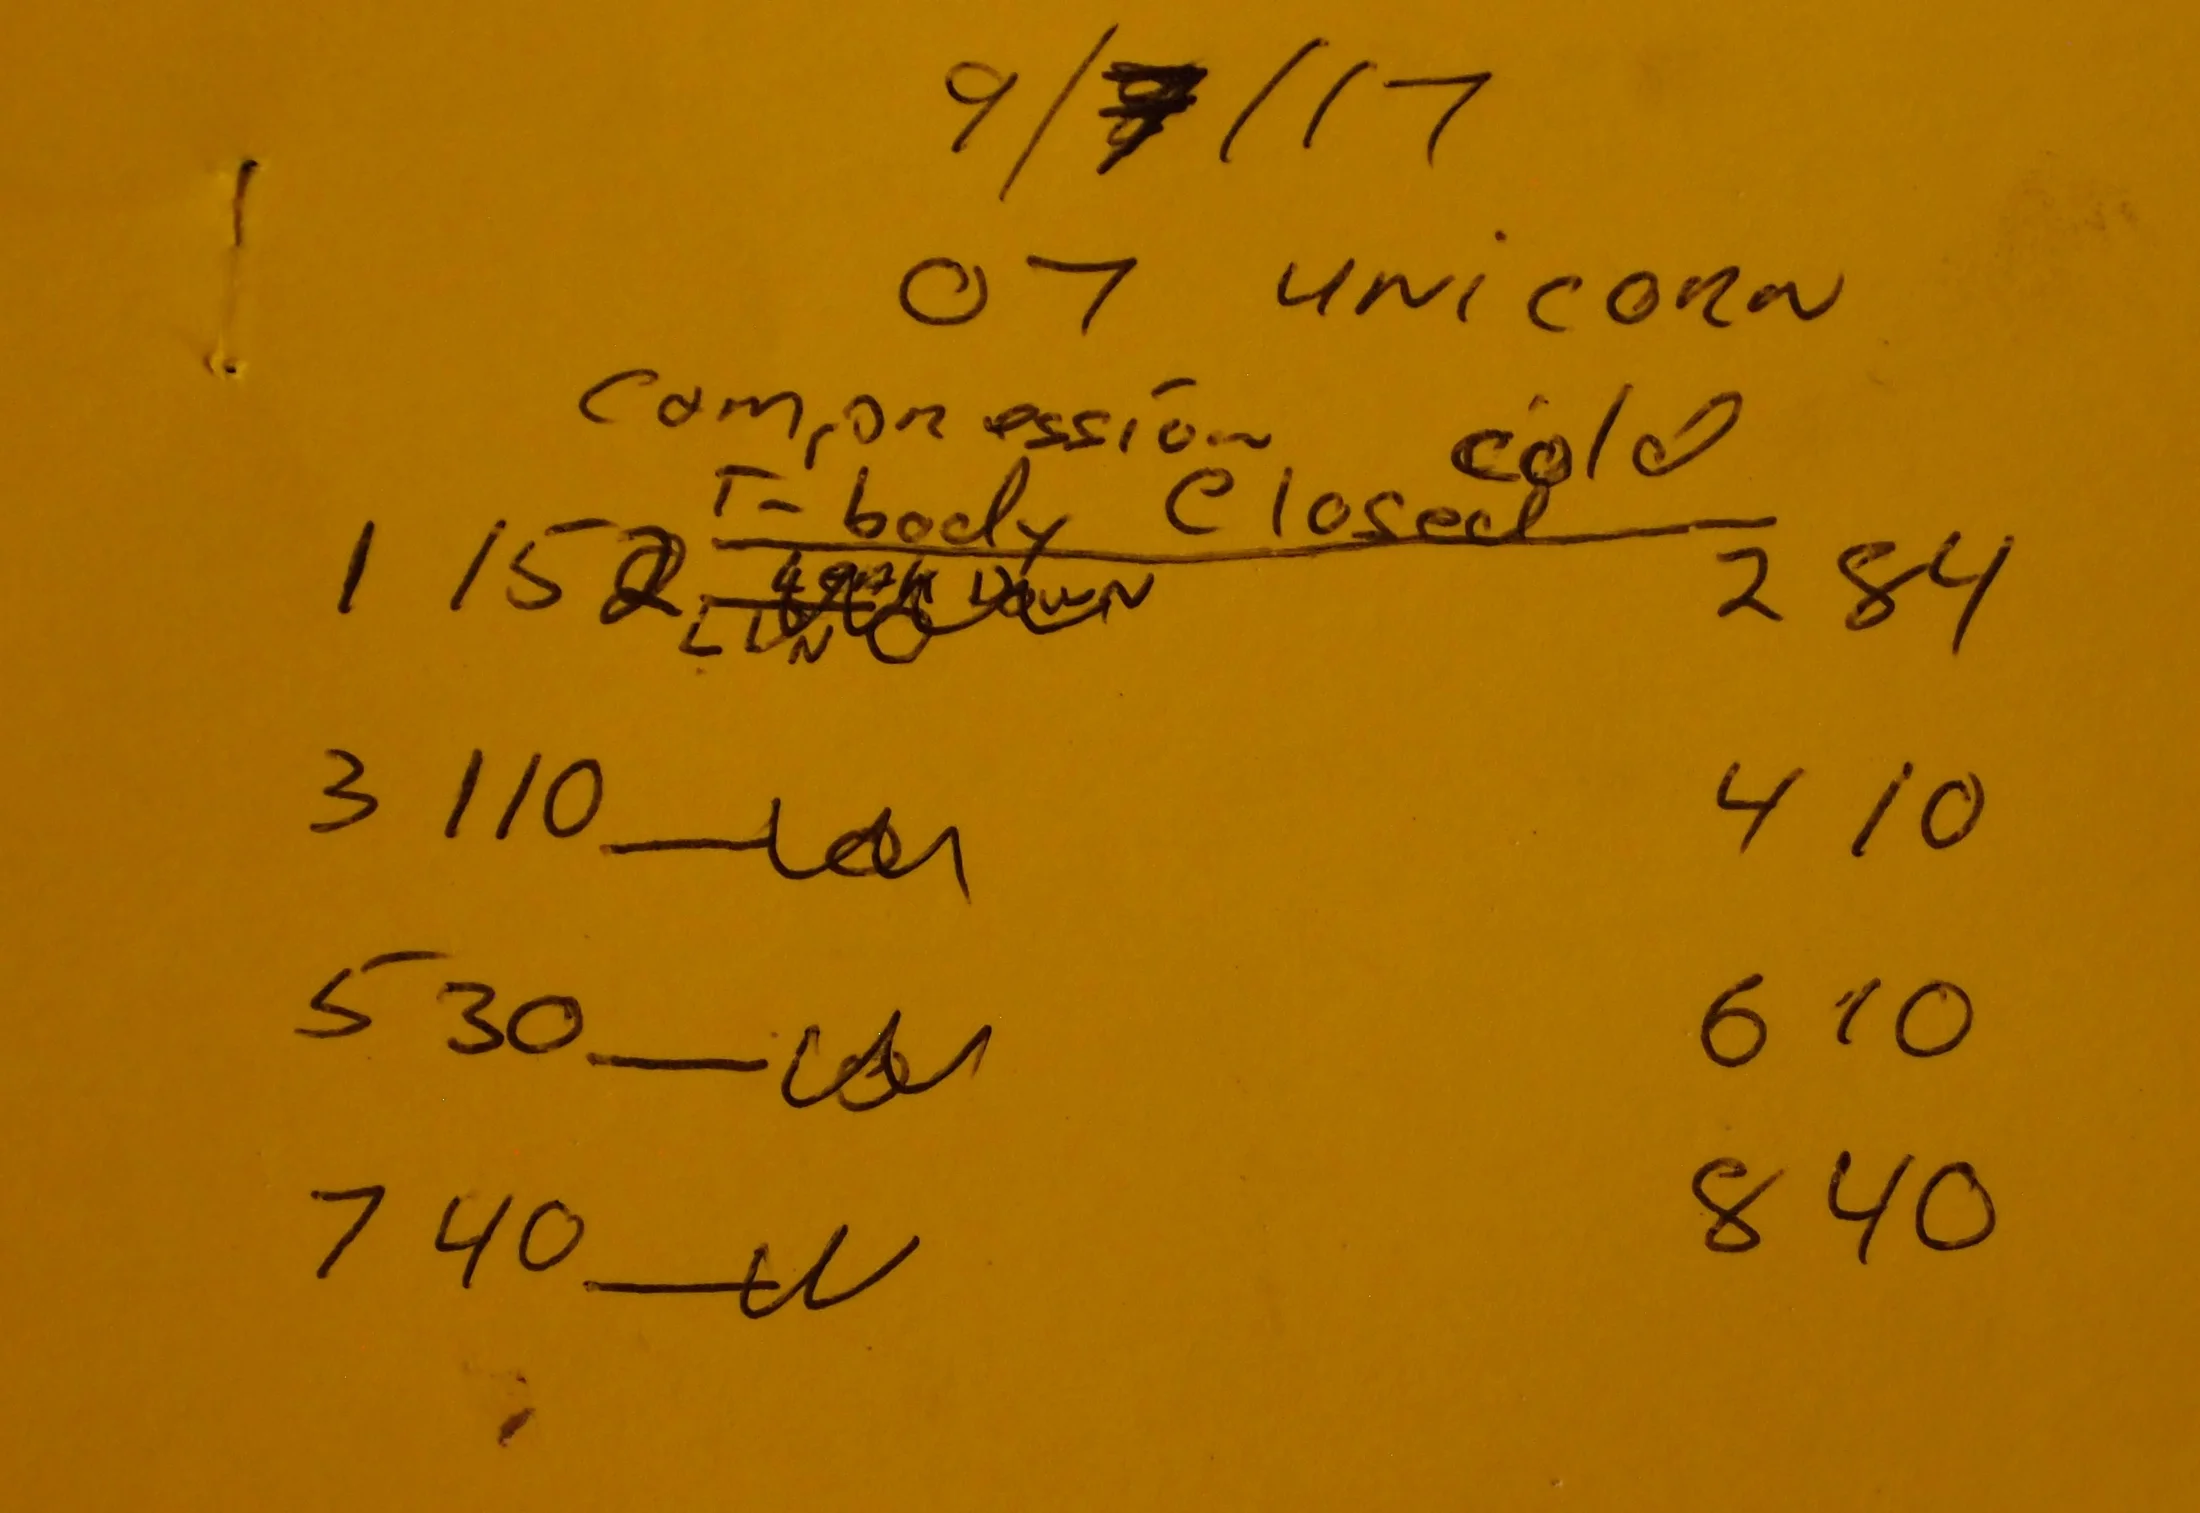 9/9/17
07 UNICORN
Compression cold
T-body Closed
1 152 2 84
LUNO DOWN
3 110 4 10
5 30 6 10
7 40 8 40